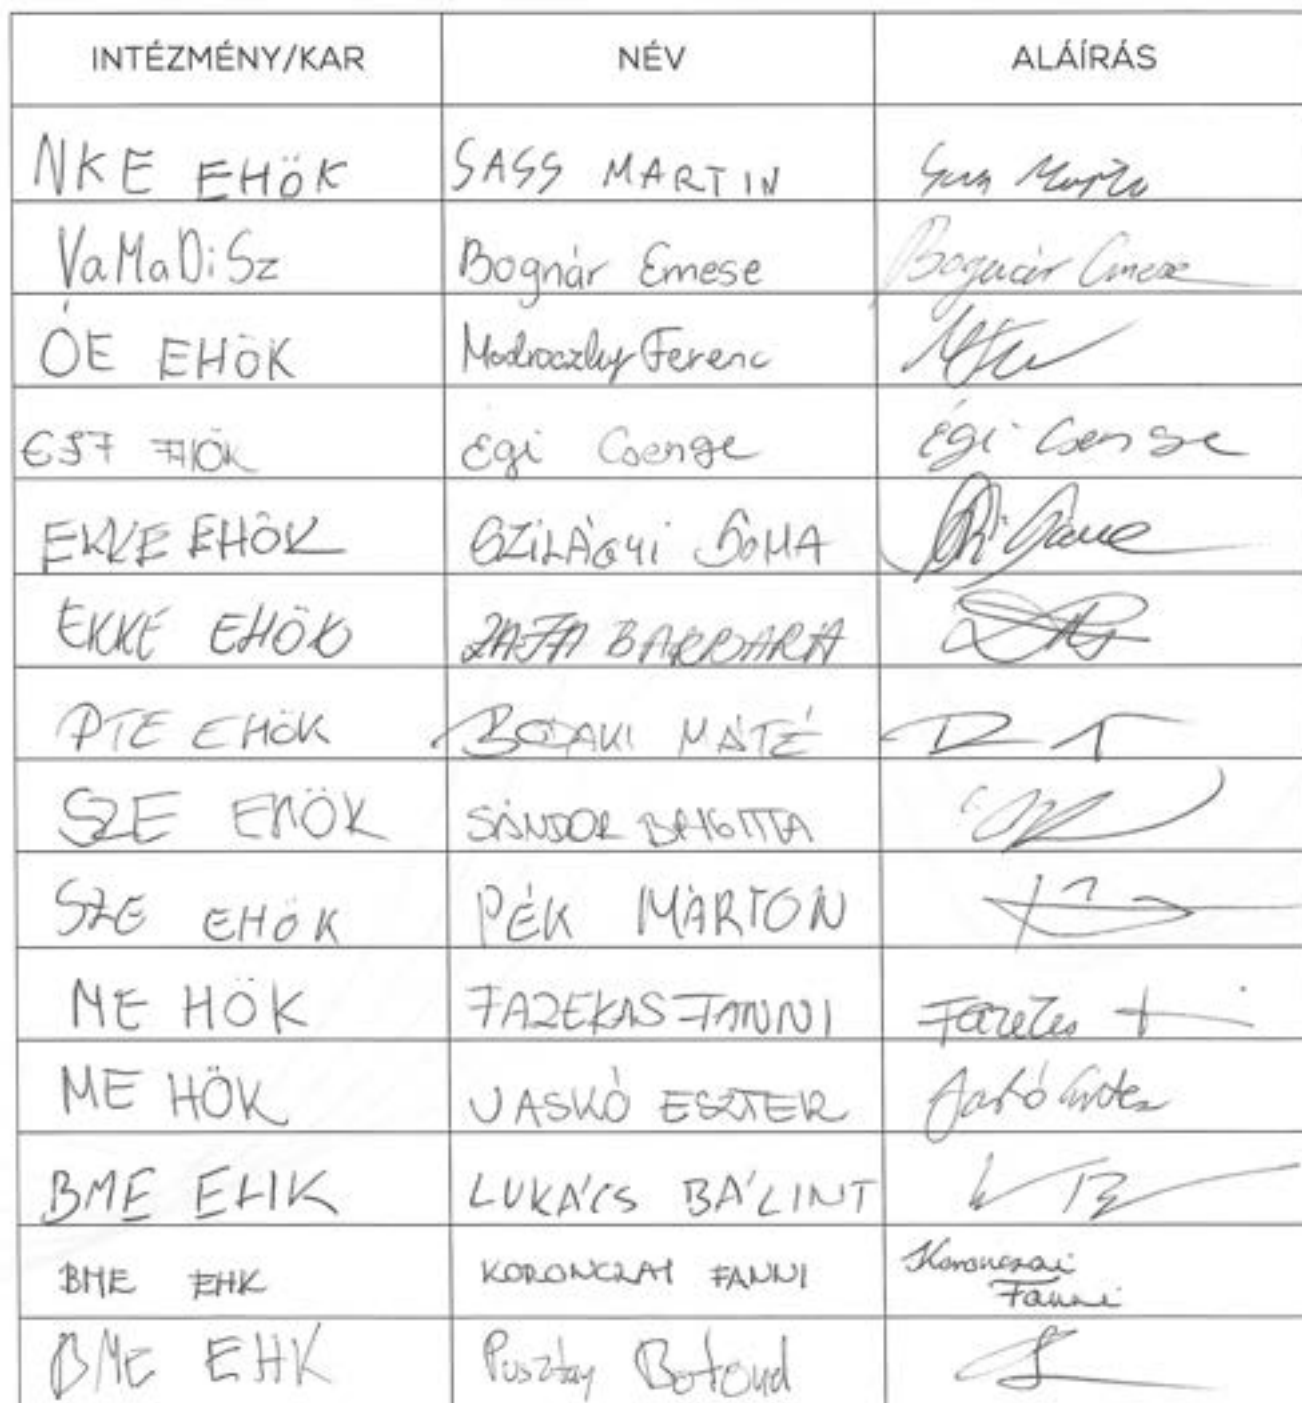 INTÉZMÉNY/KAR NÉV ALÁÍRÁS
NKE EHÖK SASS MARTIN
VaMaDiSz Bognár Emese Bognár Emese
ÓE EHÖK Modroczky Ferenc
Égi Csenge Égi Csenge
EKKE EHÖK SZILÁGYI SOMA
EKKE EHÖK BARBARA
PTE EHÖK BODAKI MÁTÉ
SZE EHÖK SÁNDOR BRIGITTA
SZE EHÖK PÉK MÁRTON
ME HÖK FAZEKAS FANNI Fazekas
ME HÖK JASKÓ ESZTER Jaskó Eszter
BME EHK LUKÁCS BÁLINT
BME EHK KORONCZAI FANNI Koronczai
Fanni
BME EHK Pusztay Botond